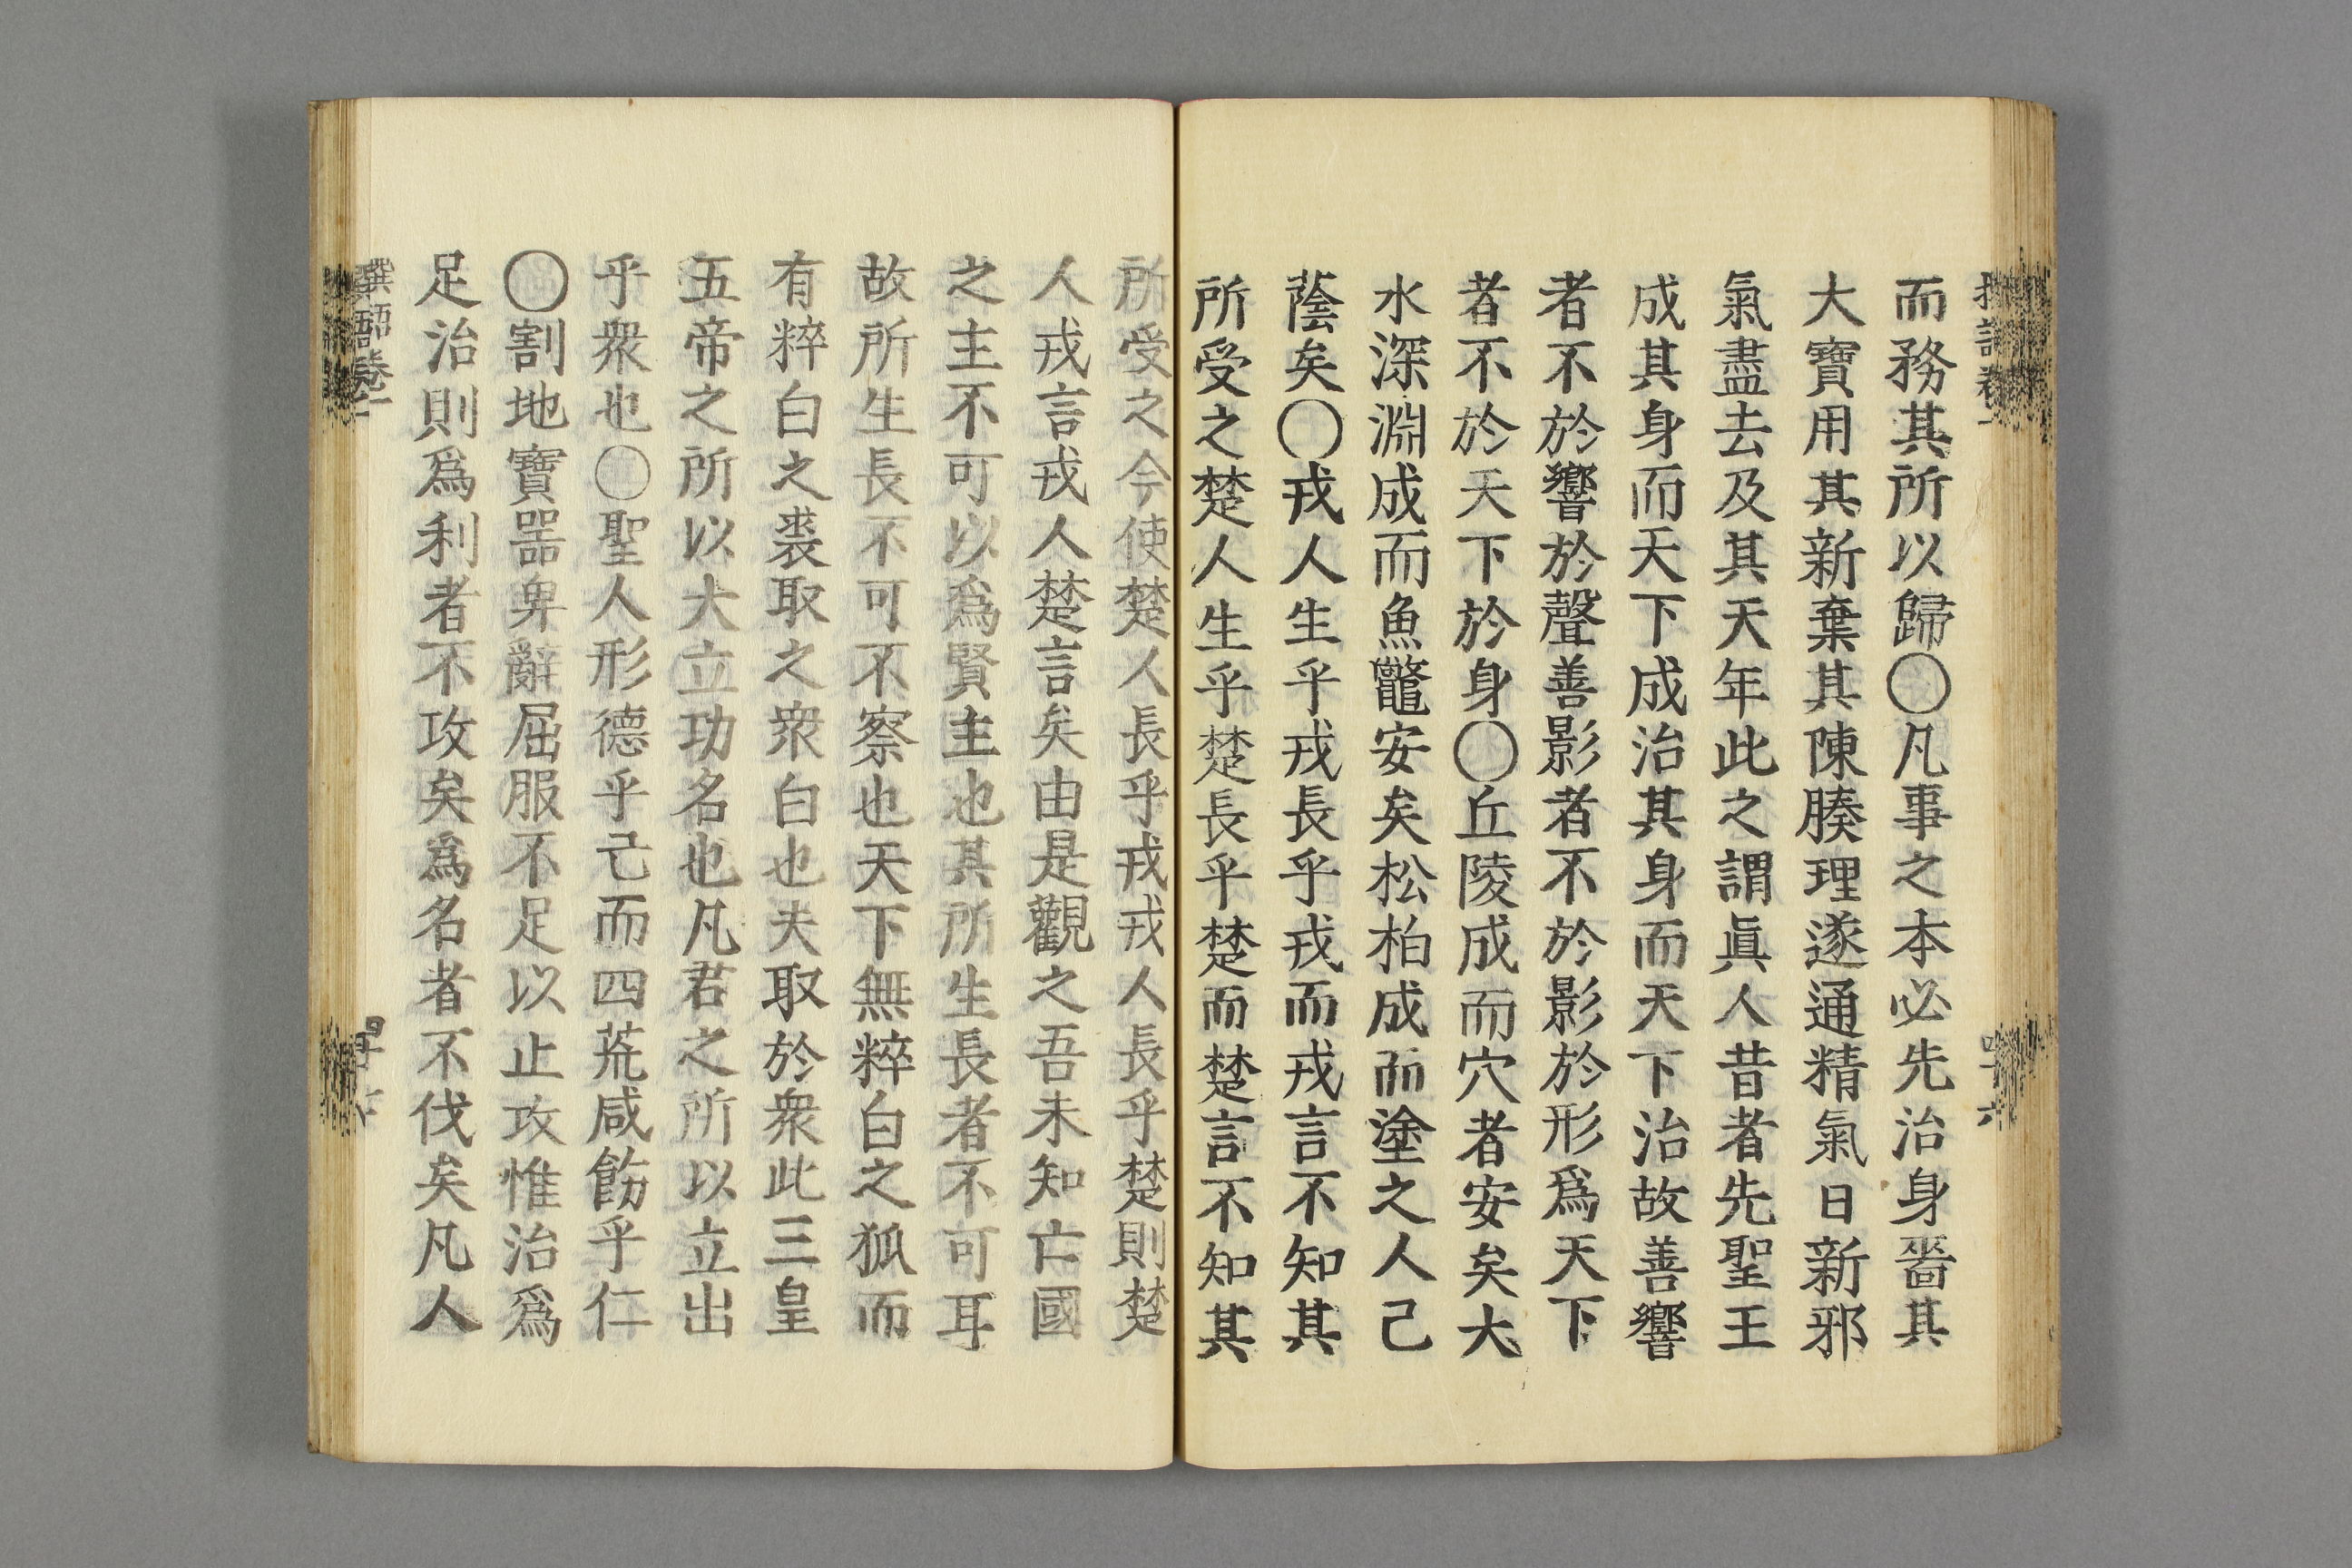 而務其所以歸〇凡事之本必先治身嗇其
大寶用其新棄其陳腠理遂通精氣日新邪
氣盡去及其天年此之謂眞人昔者先聖王
成其身而天下成治其身而天下治故善響
者不於響於聲善影者不於影於形爲天下
者不於天下於身〇丘陵成而穴者安矣大
水深淵成而魚鼈安矣松柏成而塗之人已
蔭矣〇戎人生乎戎長乎戎而戎言不知其
所受之楚人生乎楚長乎楚而楚言不知其
所受之今使楚人長乎戎戎人長乎楚則楚
人戎言戎人楚言矣由是觀之吾未知亡國
之主不可以爲賢主也其所生長者不可耳
故所生長不可不察也天下無粹白之狐而
有粹白之裘取之衆白也夫取於衆此三皇
五帝之所以大立功名也凡君之所以立出
乎衆也〇聖人形德乎己而四荒咸飭乎仁
〇割地寶器卑辭屈服不足以止攻惟治爲
足治則爲利者不攻矣爲名者不伐矣凡人
撰語卷一
四十六